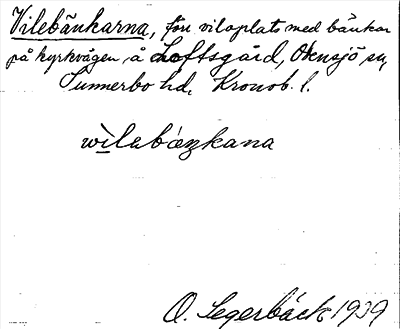 Vilebänkarna, förr viloplats med bänkar
på kyrkvägen, å Loftsgård, Odensjö sn,
Sunnerbo hd, Kronob. l.
wìlebæŋkana
O. Segerbäck 1939